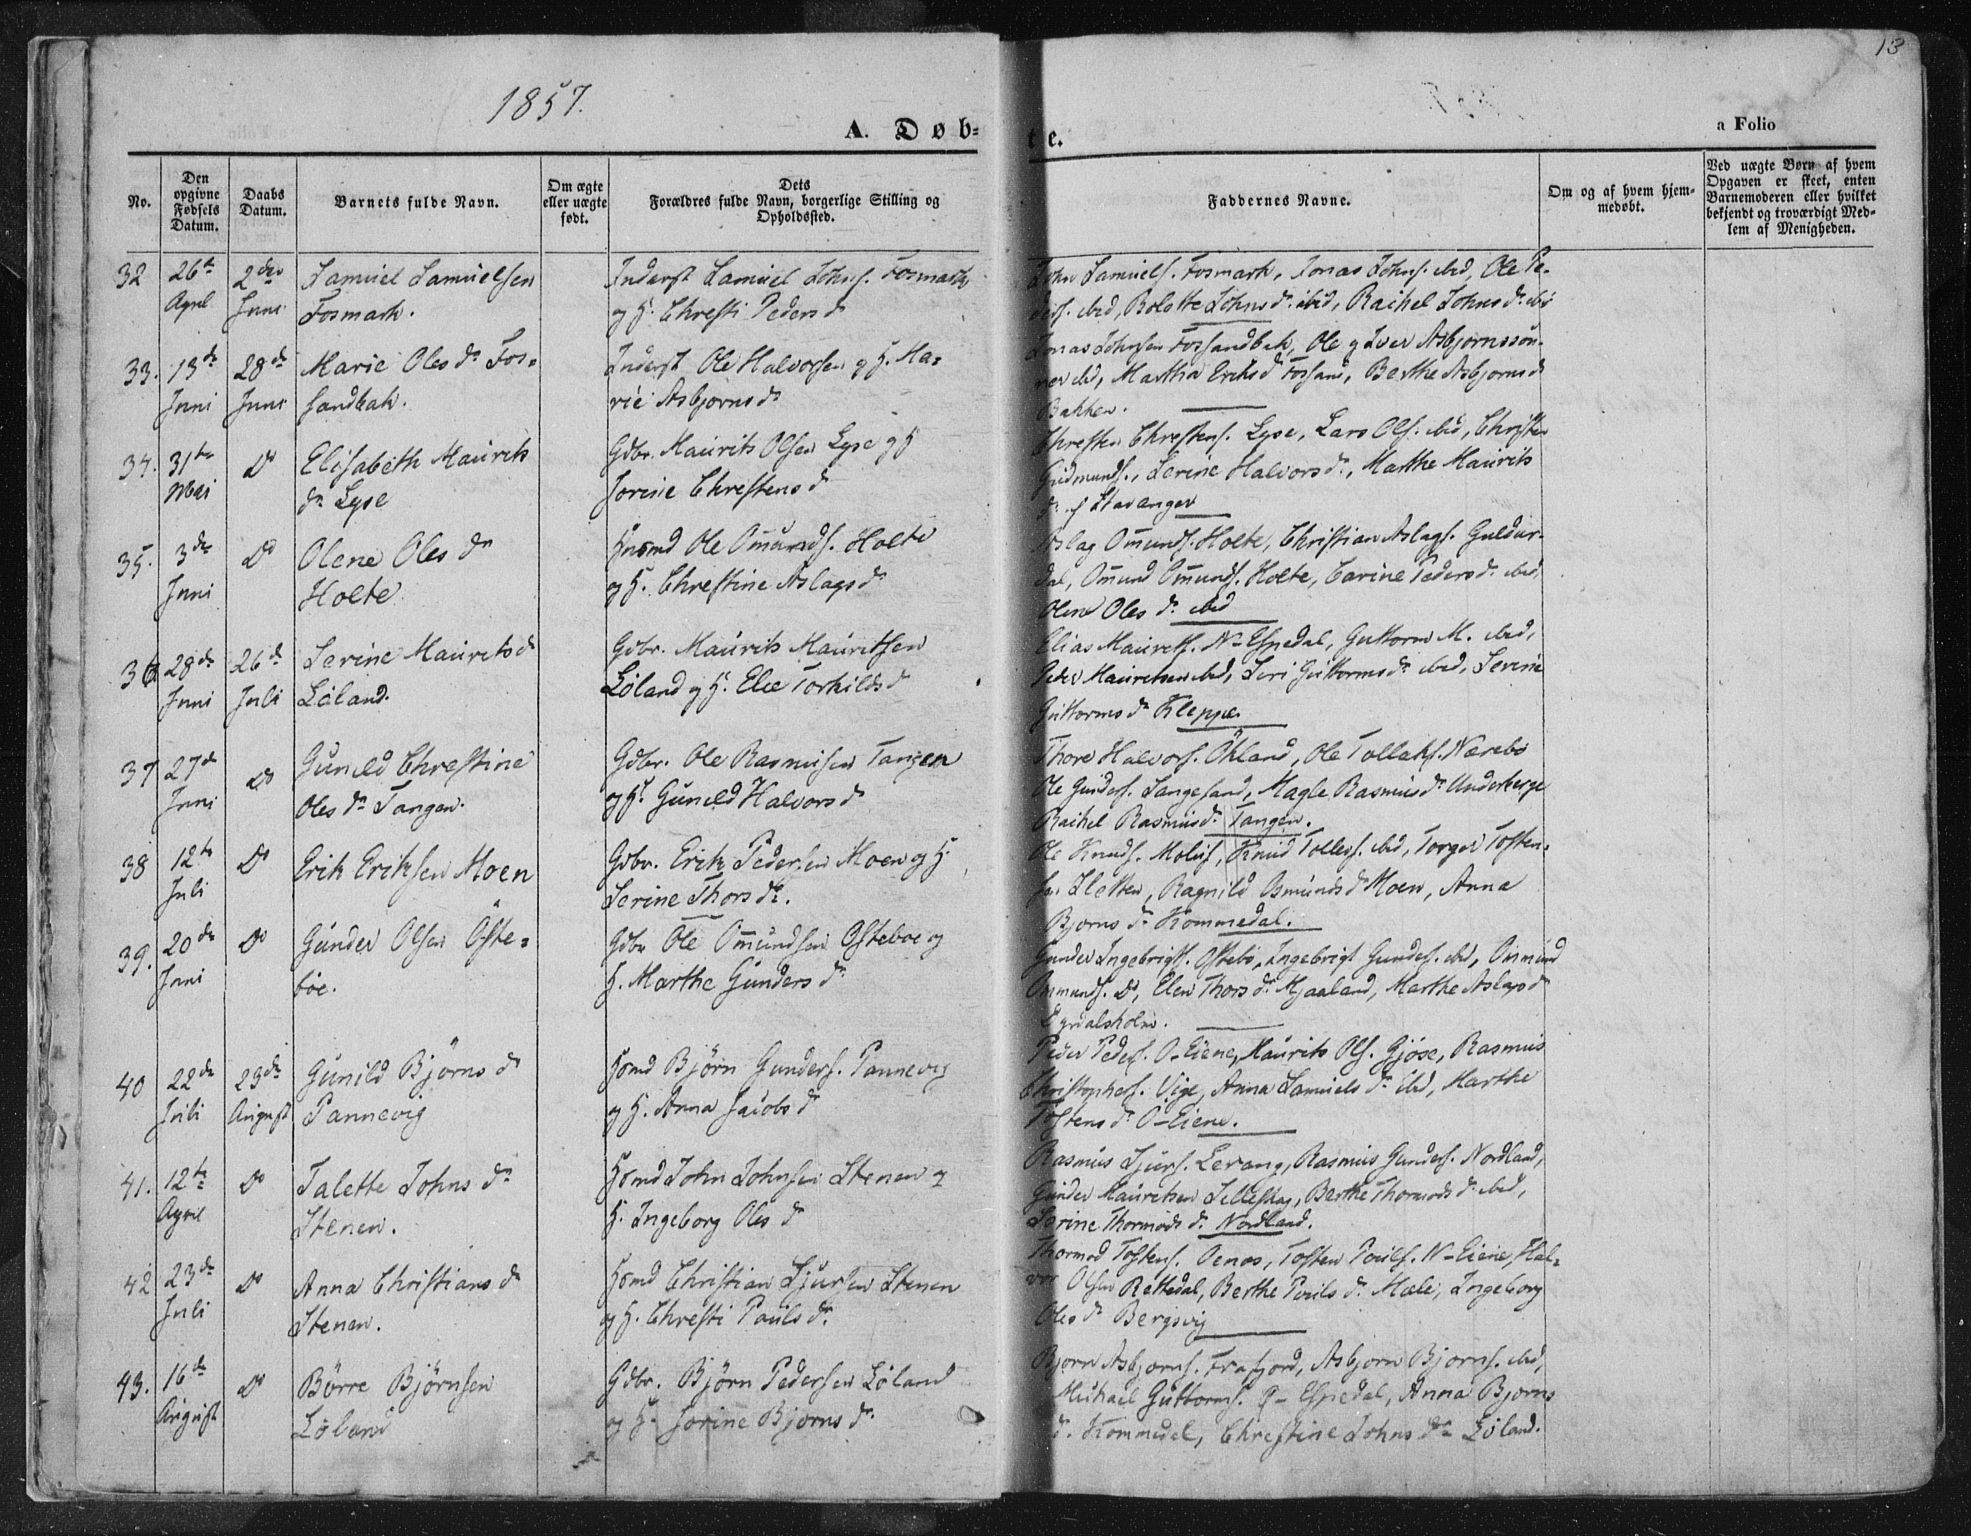 13
1857.
A. Døb=
te.
a Folio
No.
Den opgivne Fødsels Datum.
Daabs Datum.
Barnets fulde Navn.
Om ægte eller uægte født.
Dets Forældres fulde Navn, borgerlige Stilling og Opholdssted.
Faddernes Navne.
Om og af hvem hjem=medøbt.
Ved uægte Børn af hvem Opgaven er skeet, enten Barnemoderen eller hvilket bekjendt og troværdigt Med=lem af Menigheden.
32 26te 2den Samuel Samuelsen Inderst Samuel Johns. Fosmark,
April Juni Fosmark. og H. Chresti Pedersd
John Samuels. Fosmark, Jonas Johns. ibid, Ole Pe-
ders. ibid, Bolette Johnsdr. ibid, Rachel Johnsdr. ibid
33. 13de 28de Marie Olesdr Fos= Inderst Ole Halvorsen og H. Ma=
Juni Juni sandbak. rie Asbjornsdr
Jonas Johnsen Fossandbak, Ole og Iver Asbjornssøn-
ner ibid, Martha Eriksd Fossand, Berthe Asbjornsd
Bakken.
34. 31te Do Elisabeth Maurits Gdbr. Maurits Olsen Lyse og H
Mai dr Lyse Serine Chrestensd
Chresten Chrestens. Lyse, Lars Ols. ibid, Christen
Gudmunds., Serine Halvorsdr., Marthe Maurits
dr. f Stavanger
35. 3die Do Olene Olesdr Husmd Ole Omunds. Holte
Juni Holte og H. Chrestine Aslagsdr
Aslag Omunds. Holte, Christian Aslags. Guldur-
dal, Omund Omunds. Holte, Carine Pedersdr. ibid,
Olene Olesdr. ibid
36 28de 26de Serine Mauritsdr Gdbr. Maurits Mauritsen
Juni Juli Løland. Løland og H. Elie Torkildsd
Elias Maurits. N-Espedal, Guttorm M. ibid,
Peder Mauritsen ibid, Siri Guttormsdr ibid, Serine
Guttormsdr Kleppe
37 27de Do Gunild Chrestine Gdbr. Ole Rasmusen Tangen
Juni Olesdr Tangen. og H. Gunild Halvorsd
Thore Halvors. Økland, Ole Tollaks. Nærebø
Ole Gunders. Langesand, Magle Rasmusdr Underberge
Rachel Rasmusdr. Tangen.
38 12te Do Erik Eriksen Moen Gdbr. Erik Pedersen Moen og H.
Juli Serine Thorsdr.
Ole Knuds. Molus, Knud Tollevs. ibid, Torger Tosten-
sen Sletten, Ragnild Osmundsdr Moen, Anna
Bjornsdr Kommedal.
39. 20de Do Gunder Olsen Øste= Gdbr Ole Omundsen Østeboe og
Juni bøe. H. Marthe Gundersdr
Gunder Ingebrigts. Østebø, Ingebrigt Gunders. ibid, Ommund
Ommunds. Do, Elen Thorsdr Mjaaland, Marthe Aslagsd
40 22de 23de Gunild Bjørnsdr Husmd Bjørn Gunders. Pannevig
Juli August Pannevig og H. Anna Jacobsdr
Peder Peders. O-Eiene, Maurits Ols. Gjøse, Rasmus
Christophers. Vige, Anna Samuelsdr. ibid, Marthe
Tostensdr O-Eiene.
41. 12te Do Talette Johnsdr Husmd John Johnsen Stenen og
April Stenen. H. Ingeborg Olesdr
Rasmus Sjurs. Levang, Rasmus Gunders. Nordland,
Gunder Mauritsen Selleskog, Berthe Thormodsdr. ibid,
Serine Thormodsdr. Nordland.
42 23de Do Anna Christiansdr Husmd Christian Sjursen Stenen
Juli Stenen. og H. Chresti Paulsdr.
Thormod Tostens. Oenos, Tosten Pouls. N-Eiene, Hal=
vor Olsen Rettedal, Berthe Poulsdr. Mæle, Ingeborg
Olesdr Bergsvig
43. 16de Do Børre Bjørnsen Gdbr. Bjørn Pedersen Løland
August Løland og H. Serine Bjornsdr.
Bjorn Asbjorns. Frafjord, Asbjorn Bjorns. ibid,
Michael Guttorms. Ø-Espedal, Anna Bjorns
dr. Kommedal, Chrestine Johnsdr Løland.